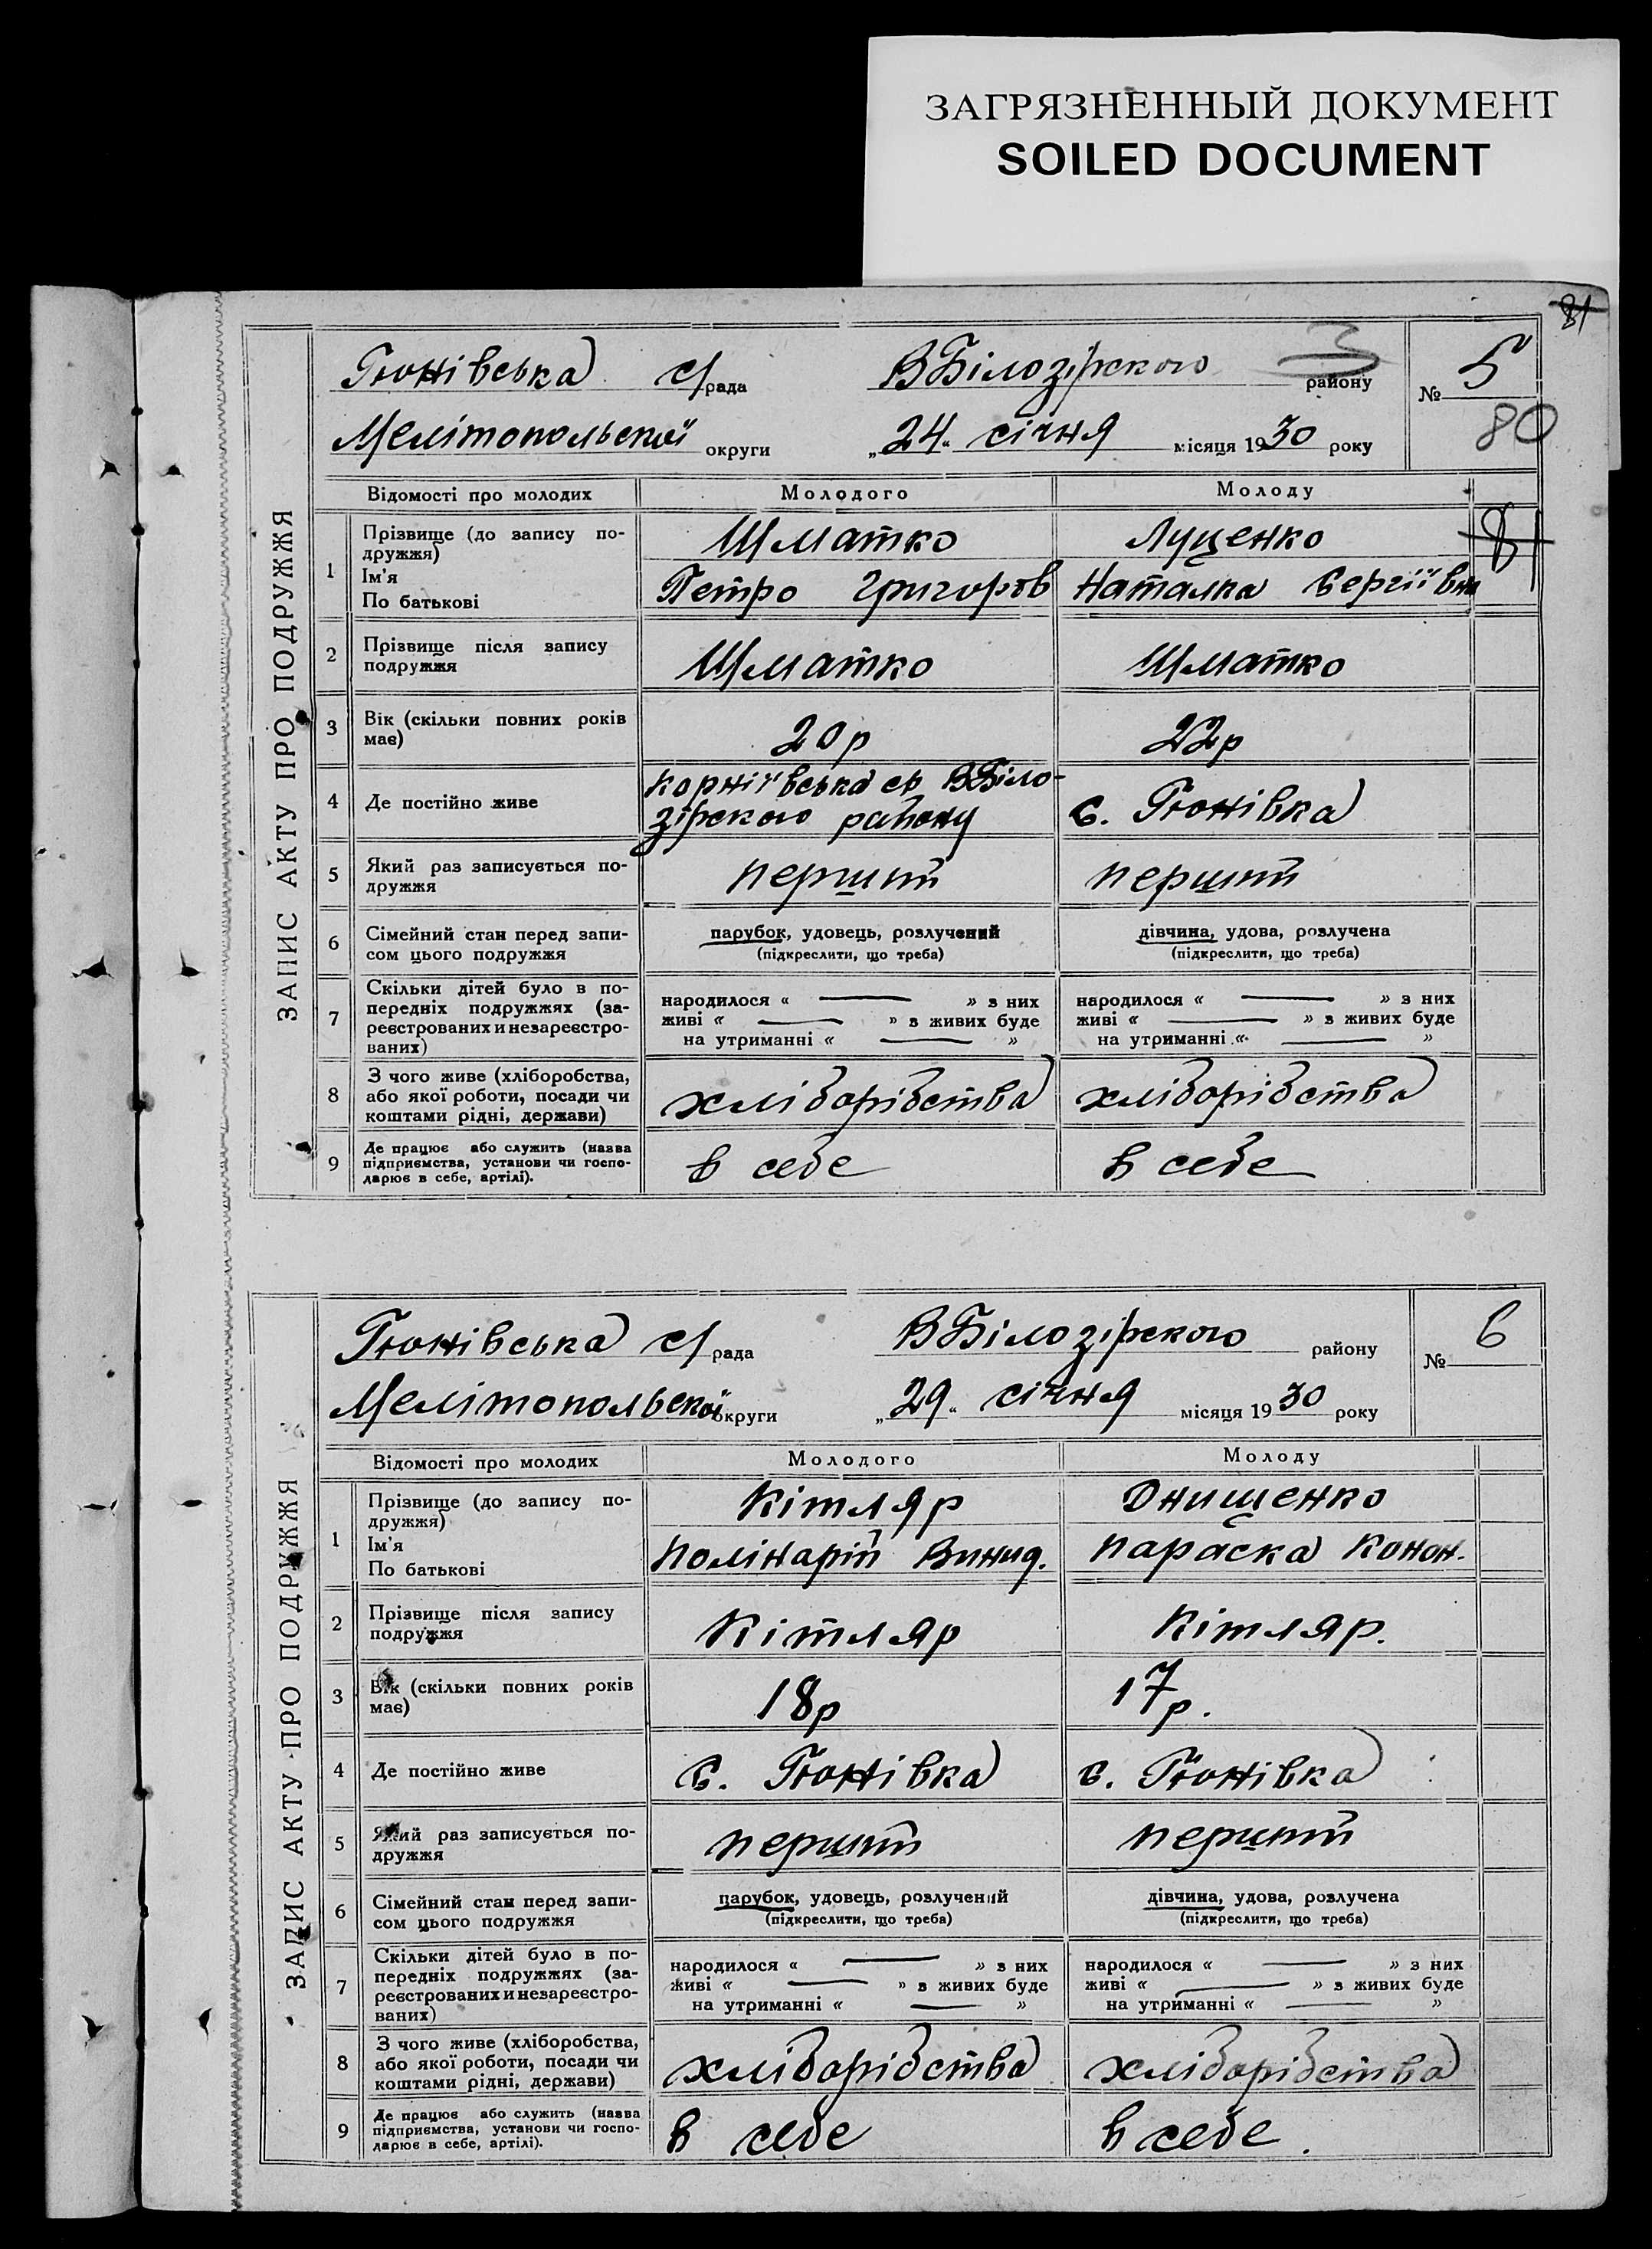 ЗАГРЯЗНЕННЫЙ ДОКУМЕНТ
SOILED DOCUMENT
81
ЗАПИС АКТУ ПРО ПОДРУЖЖЯ
Гюнівська с/рада ВБілозірского району № 5
3
Мелітопольської округи „24“ січня місяця 1930 року
80
Відомості про молодих Молодого Молоду
81
1 Прізвище (до запису по-
дружжя) Шматко Луценко
Ім'я
По батькові Петро Григоров Наталка Сергіївна
2 Прізвище після запису
подружжя Шматко Шматко
3 Вік (скільки повних років
має) 20р 22р
4 Де постійно живе Корніївська ср ВБіло-
зірского району с. Гюнівка
5 Який раз записується по-
дружжя перший перший
6 Сімейний стан перед запи-
сом цього подружжя
парубок, удовець, розлучений дівчина, удова, розлучена
(підкреслити, що треба) (підкреслити, що треба)
7 Скільки дітей було в по-
передніх подружжях (за-
реєстрованих и незареєстро-
ваних)
народилося « — » з них народилося « — » з них
живі « — » з живих буде живі « — » з живих буде
на утриманні « — » на утриманні « — »
8 З чого живе (хліборобства,
або якої роботи, посади чи
коштами рідні, держави) хліборібства хліборібства
9 Де працює або служить (назва
підприємства, установи чи госпо-
дарює в себе, артілі). в себе в себе
ЗАПИС АКТУ ПРО ПОДРУЖЖЯ
Гюнівська с/рада ВБілозірского району № 6
Мелітопольської округи „29“ січня місяця 1930 року
Відомості про молодих Молодого Молоду
1 Прізвище (до запису по-
дружжя) Кітляр Онищенко
Ім'я
По батькові Полінарій Виник. Параска Конон.
2 Прізвище після запису
подружжя Кітляр Кітляр.
3 Вік (скільки повних років
має) 18р 17р.
4 Де постійно живе с. Гюнівка с. Гюнівка
5 Який раз записується по-
дружжя перший перший
6 Сімейний стан перед запи-
сом цього подружжя
парубок, удовець, розлучений дівчина, удова, розлучена
(підкреслити, що треба) (підкреслити, що треба)
7 Скільки дітей було в по-
передніх подружжях (за-
реєстрованих и незареєстро-
ваних)
народилося « — » з них народилося « — » з них
живі « — » з живих буде живі « — » з живих буде
на утриманні « — » на утриманні « — »
8 З чого живе (хліборобства,
або якої роботи, посади чи
коштами рідні, держави) хліборібства хліборібства
9 Де працює або служить (назва
підприємства, установи чи госпо-
дарює в себе, артілі). в себе в себе.